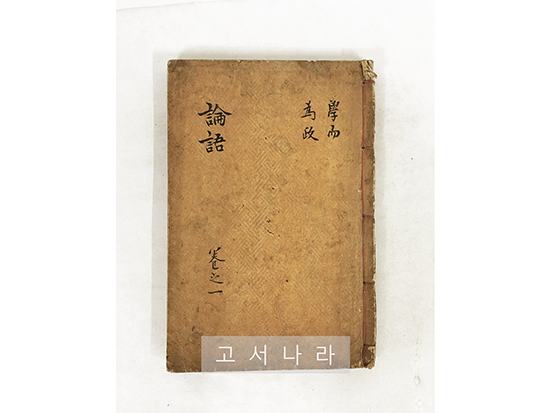 學而
為政
論語
卷之一
고서나라